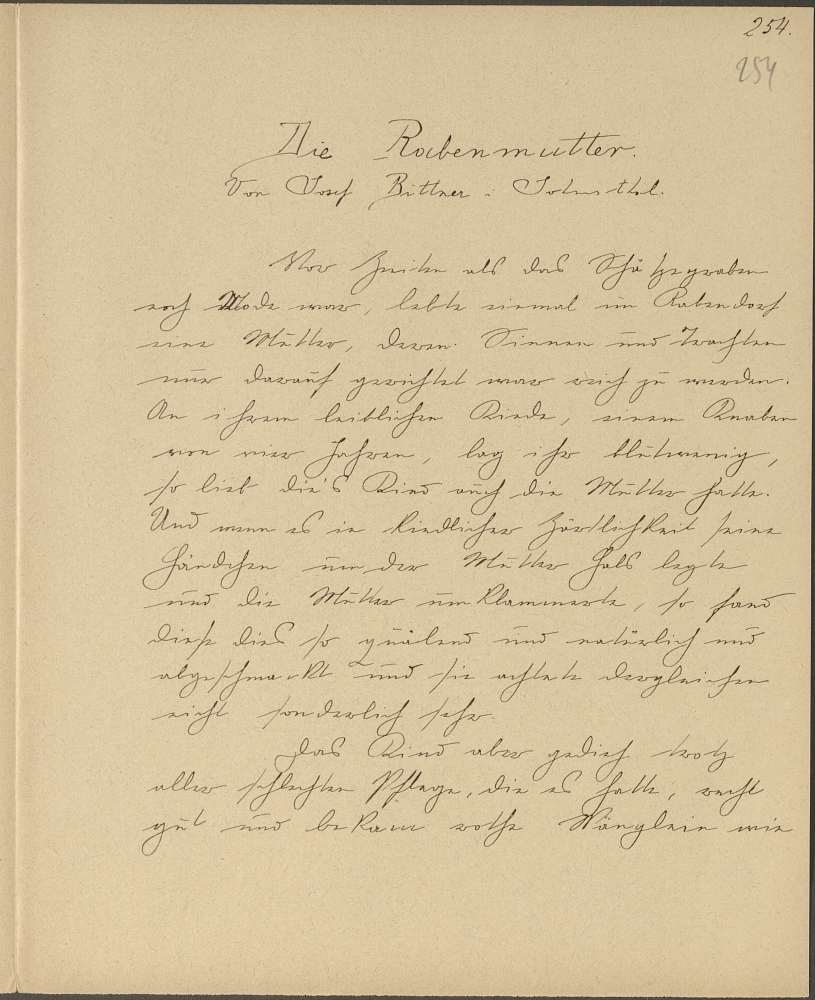 254.
254
Die Rabenmutter.
Von Josef Bittner :
Vor Zeiten als das Schätzegraben
noch Mode war, lebte einmal im Rabendorf
eine Mutter, deren Sinnen und Trachten
nur darauf gerichtet war reich zu werden.
An ihrem leiblichen Kinde, einem Knaben
von vier Jahren, lag ihr blutwenig,
so lieb die's Kind auch die Mutter hatte.
Und wenn es in kindlicher Zärtlichkeit seine
Händchen um der Mutter Hals legte
und die Mutter umklammerte, so fand
diese dies so quälend und natürlich und
abgeschmackt und sie achtete dergleichen
nicht sonderlich sehr.
Das Kind aber gedieh trotz
aller schlechten Pflege, die es hatte, recht
gut und bekam rothe Wänglein wie